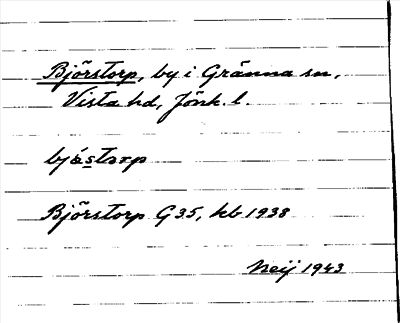 Björstorp, by i Gränna sn,
Vista hd, Jönk. l.
bjǻstɔrp
Björstorp G 35, kb 1938
Neij 1943